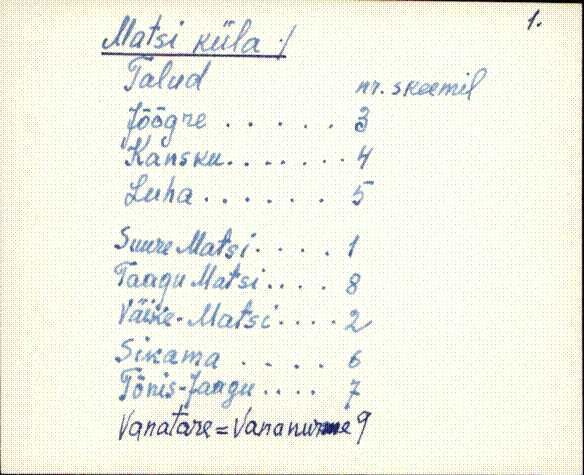 1.
Matsi küla :/
Talud nr. skeemil
Jõõgre ...... 3
Kansku....... 4
Luha....... 5
Suure Matsi.... 1
Taagu Matsi.... 8
Väike-Matsi.... 2
Sikama .... 6
Tõnis-Jaagu.... 7
Vanatare = Vananurme 9